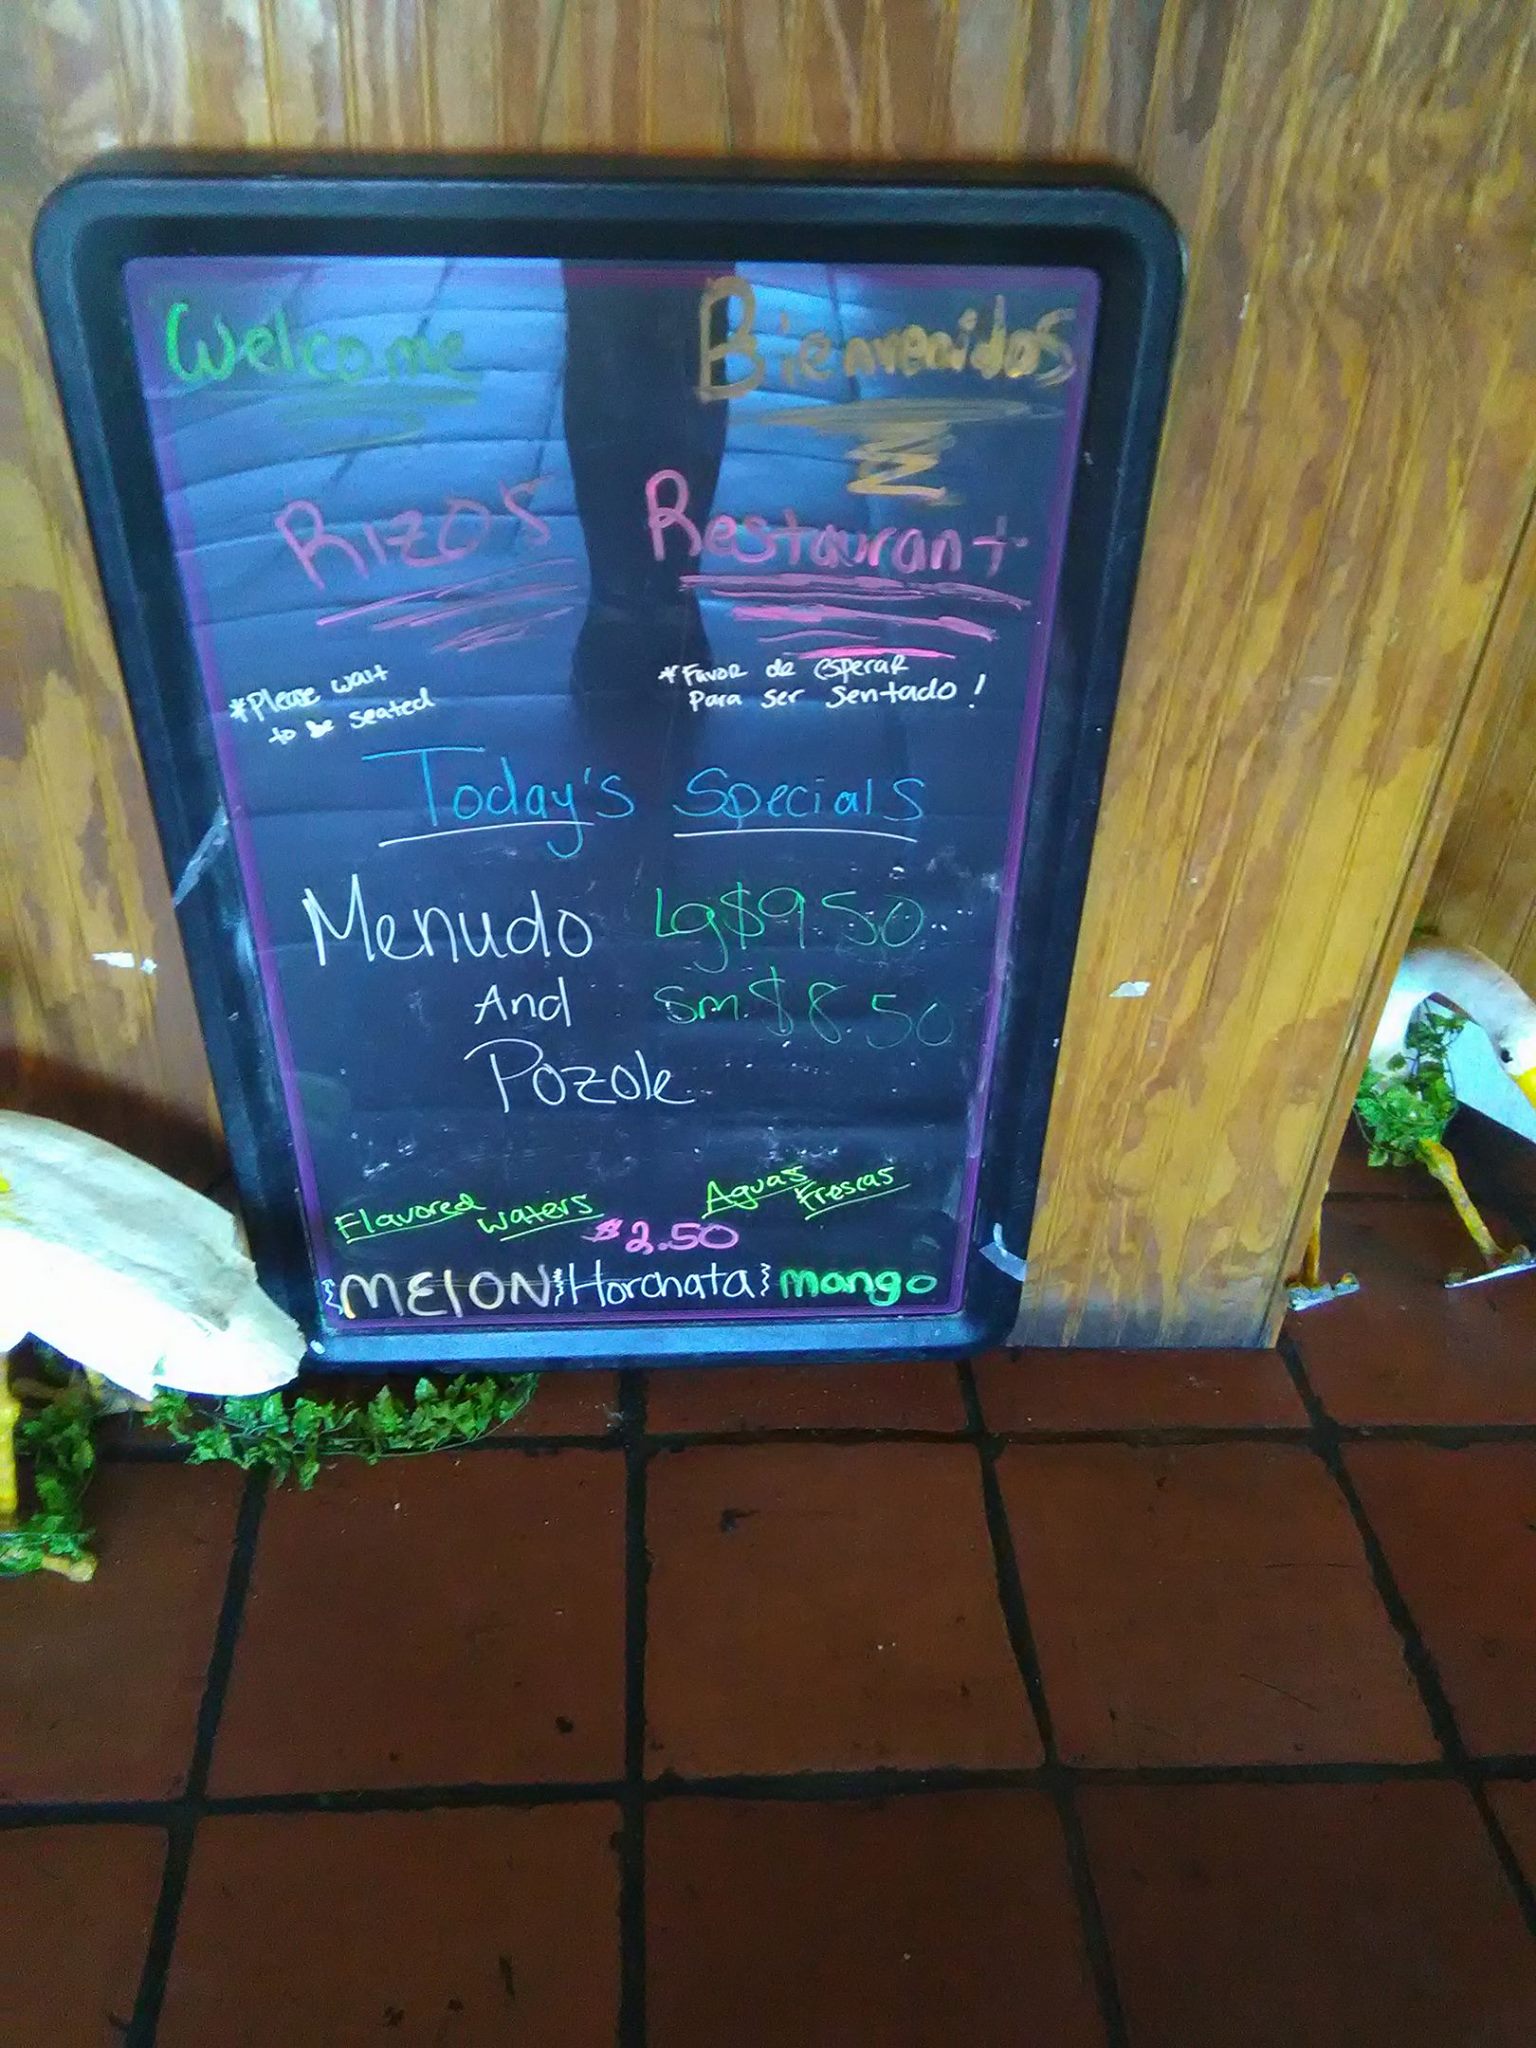 Welcome Bienvenidos
Rizos Restaurant
*Please wait
to be seated
*Favor de esperar
para ser sentado!
Today's Specials
Menudo Lg $9.50
And Sm. $8.50
Pozole
Flavored waters Aguas Frescas
$2.50
MElON Horchata mango